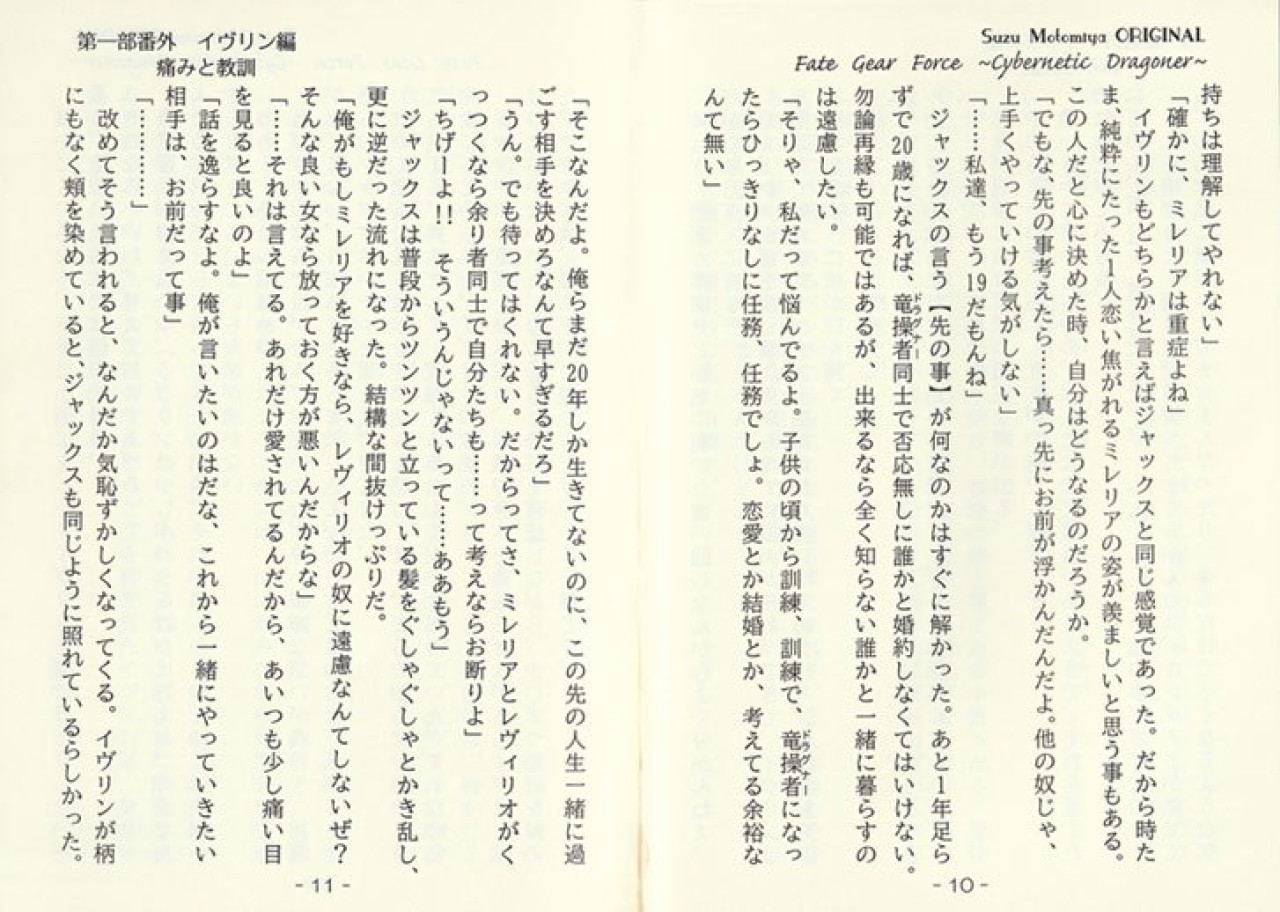 Suzu Motomiya ORIGINAL
Fate Gear Force ~Cybernetic Dragoner~
持ちは理解してやれない」
「確かに、ミレリアは重症よね」
イヴリンもどちらかと言えばジャックスと同じ感覚であった。だから時た
ま、純粋にたった1人恋い焦がれるミレリアの姿が羨ましいと思う事もある。
この人だと心に決めた時、自分はどうなるのだろうか。
「でもな、先の事考えたら……真っ先にお前が浮かんだんだよ。他の奴じゃ、
上手くやっていける気がしない」
「……私達、もう19だもんね」
ジャックスの言う【先の事】が何なのかはすぐに解かった。あと1年足ら
ずで20歳になれば、竜操者同士で否応無しに誰かと婚約しなくてはいけない。
ドラグナー
勿論再縁も可能ではあるが、出来るなら全く知らない誰かと一緒に暮らすの
は遠慮したい。
「そりゃ、私だって悩んでるよ。子供の頃から訓練、訓練で、竜操者になっ
ドラグナー
たらひっきりなしに任務、任務でしょ。恋愛とか結婚とか、考えてる余裕な
んて無い」
- 10 -
第一部番外 イヴリン編
痛みと教訓
「そこなんだよ。俺らまだ20年しか生きてないのに、この先の人生一緒に過
ごす相手を決めろなんて早すぎるだろ」
「うん。でも待ってはくれない。だからってさ、ミレリアとレヴィリオがく
っつくなら余り者同士で自分たちも……って考えならお断りよ」
「ちげーよ!! そういうんじゃないって……ああもう」
ジャックスは普段からツンツンと立っている髪をぐしゃぐしゃとかき乱し、
更に逆だった流れになった。結構な間抜けっぷりだ。
「俺がもしミレリアを好きなら、レヴィリオの奴に遠慮なんてしないぜ?
そんな良い女なら放っておく方が悪いんだからな」
「……それは言えてる。あれだけ愛されてるんだから、あいつも少し痛い目
を見ると良いのよ」
「話を逸らすなよ。俺が言いたいのはだな、これから一緒にやっていきたい
相手は、お前だって事」
「…………」
改めてそう言われると、なんだか気恥ずかしくなってくる。イヴリンが柄
にもなく頬を染めていると、ジャックスも同じように照れているらしかった。
- 11 -